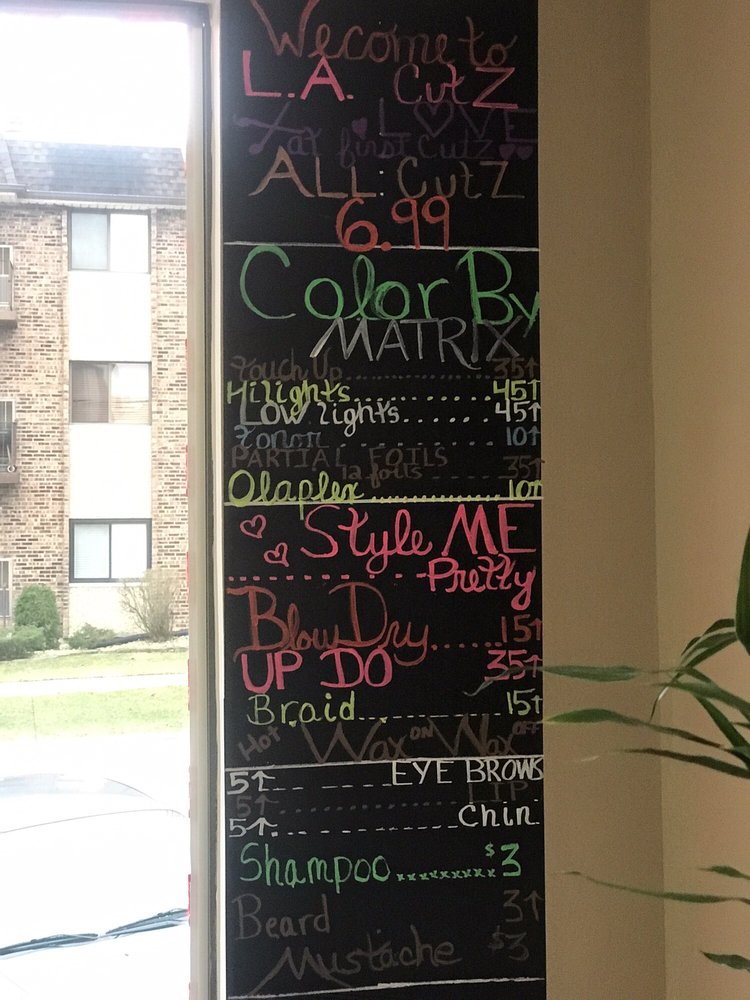 Wecome to
L.A. CutZ
LOVE
at first cutz
ALL: CutZ
6.99
Color By
MATRIX
Touch Up............35↑
Hilights............45↑
LOW lights.......45↑
Tonor............10↑
PARTIAL FOILS
12 foils......35↑
Olaplex............10↑
Style ME
Pretty
Blow Dry......15↑
UP DO 35↑
Braid............15↑
Hot Wax ON Wax OFF
5↑......EYE BROWS
5↑......LIP
5↑......Chin
Shampoo..........$3
Beard 3↑
Mustache $3